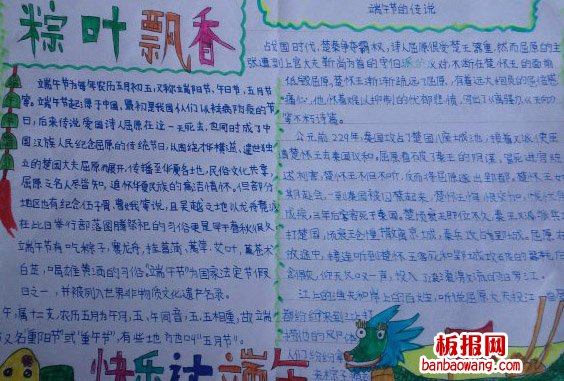 粽叶飘香
端午节为每年农历五月初五,又称端阳节,午日节,五月节
等。端午节起源于中国,最初是我国人们以祛病防疫的节
日,后来传说爱国诗人屈原在这一天死去,也同时成了中
国汉族人民纪念屈原的传统节日,以围绕才华横溢、遗世独
立的楚国大夫屈原而展开,传播至华夏各地,民俗文化共享,
屈原之名人尽皆知,追怀华夏民族的高洁情怀。但部分
地区也有纪念伍子胥、曹娥等说,且吴越之地以龙舟竞渡
在此日举行部落图腾祭祀的习俗更是早于春秋很久
端午节有吃粽子,赛龙舟,挂菖蒲,蒿草,艾叶,薰苍术
白芷,喝雄黄酒的习俗。端午节为国家法定节假
日之一,并被列入世界非物质文化遗产名录。
午,属十二支,农历五月为午月,五、午同音,五、五相重,故端
又名重阳节或"重午节",有些地方也叫"五月节"。
快乐过端午
端午节的传说
战国时代,楚秦争夺霸权,诗人屈原很受楚王器重,然而屈原的主
张遭到上官大夫靳尚为首的守旧派的反对,不断在楚怀王的面前
诋毁屈原,楚怀王渐渐疏远了屈原,有着远大抱负的屈原倍感
痛心,他怀着难以抑制的忧郁悲愤,写出了《离骚》、《天问》
等不朽诗篇。
公元前229年,秦国攻占了楚国八座城池,接着又派使臣
请楚怀王去秦国议和。屈原看破了秦王的阴谋,冒死进宫陈
述利害,楚怀王不但不听,反而将屈原逐出郢都。楚怀王
期赴会,一到秦国就被囚禁起来,楚怀王悔恨交加,忧郁
成疾,三年后客死于秦国。楚顷襄王即位不久,秦王又派兵
打楚国,顷襄王仓惶撤离京城,秦兵攻占郢城。屈原在
放途中,接连听到楚怀王客死和郢城攻破的噩耗后
江上的渔夫和岸上的百姓,听说屈原大夫投江
都纷纷来到江上
板报网
banbaowang.com